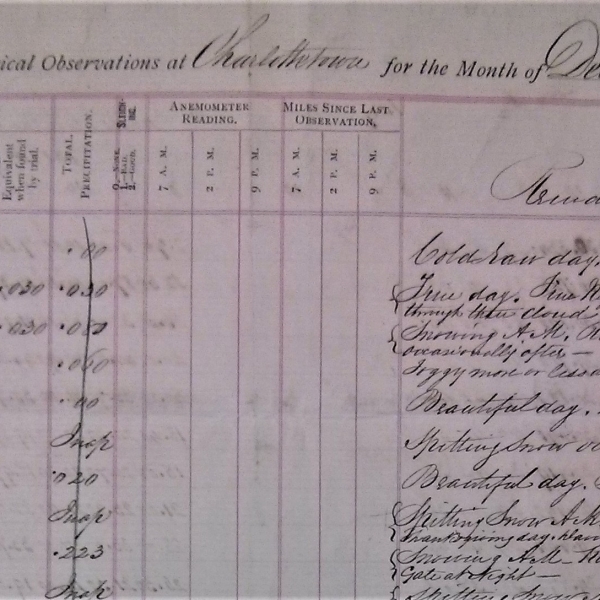 ical Observations at Charlottetown for the Month of De
Equivalent when found by trial.
TOTAL PRECIPITATION.
SLEIGHING. 0.—NONE. 1.—BAD. 2.—GOOD.
ANEMOMETER READING.
MILES SINCE LAST OBSERVATION.
7 A. M.
2 P. M.
9 P. M.
7 A. M.
2 P. M.
9 P. M.
Rema
.00 Cold raw day.
.030 .030 Fine day. Fine
through thin cloud
.030 .050 Snowing A.M.
occasionally after —
.060 Foggy more or less
.00 Beautiful day.
Inap Spitting Snow
.020 Beautiful day.
Inap Spitting Snow A.M.
Thanksgiving day.
.223 Snowing A.M —
Gale at Night —
Inap Spitting Snow